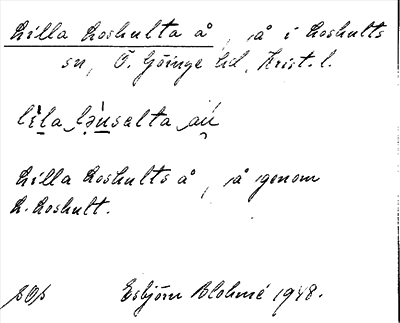 Lilla Loshulta å, å i Loshults
sn, Ö. Göinge hd, Krist. l.
lìla lòunsalta áu
Lilla Loshults å, å genom
L. Loshult.
Esbjörn Blohmé 1948.